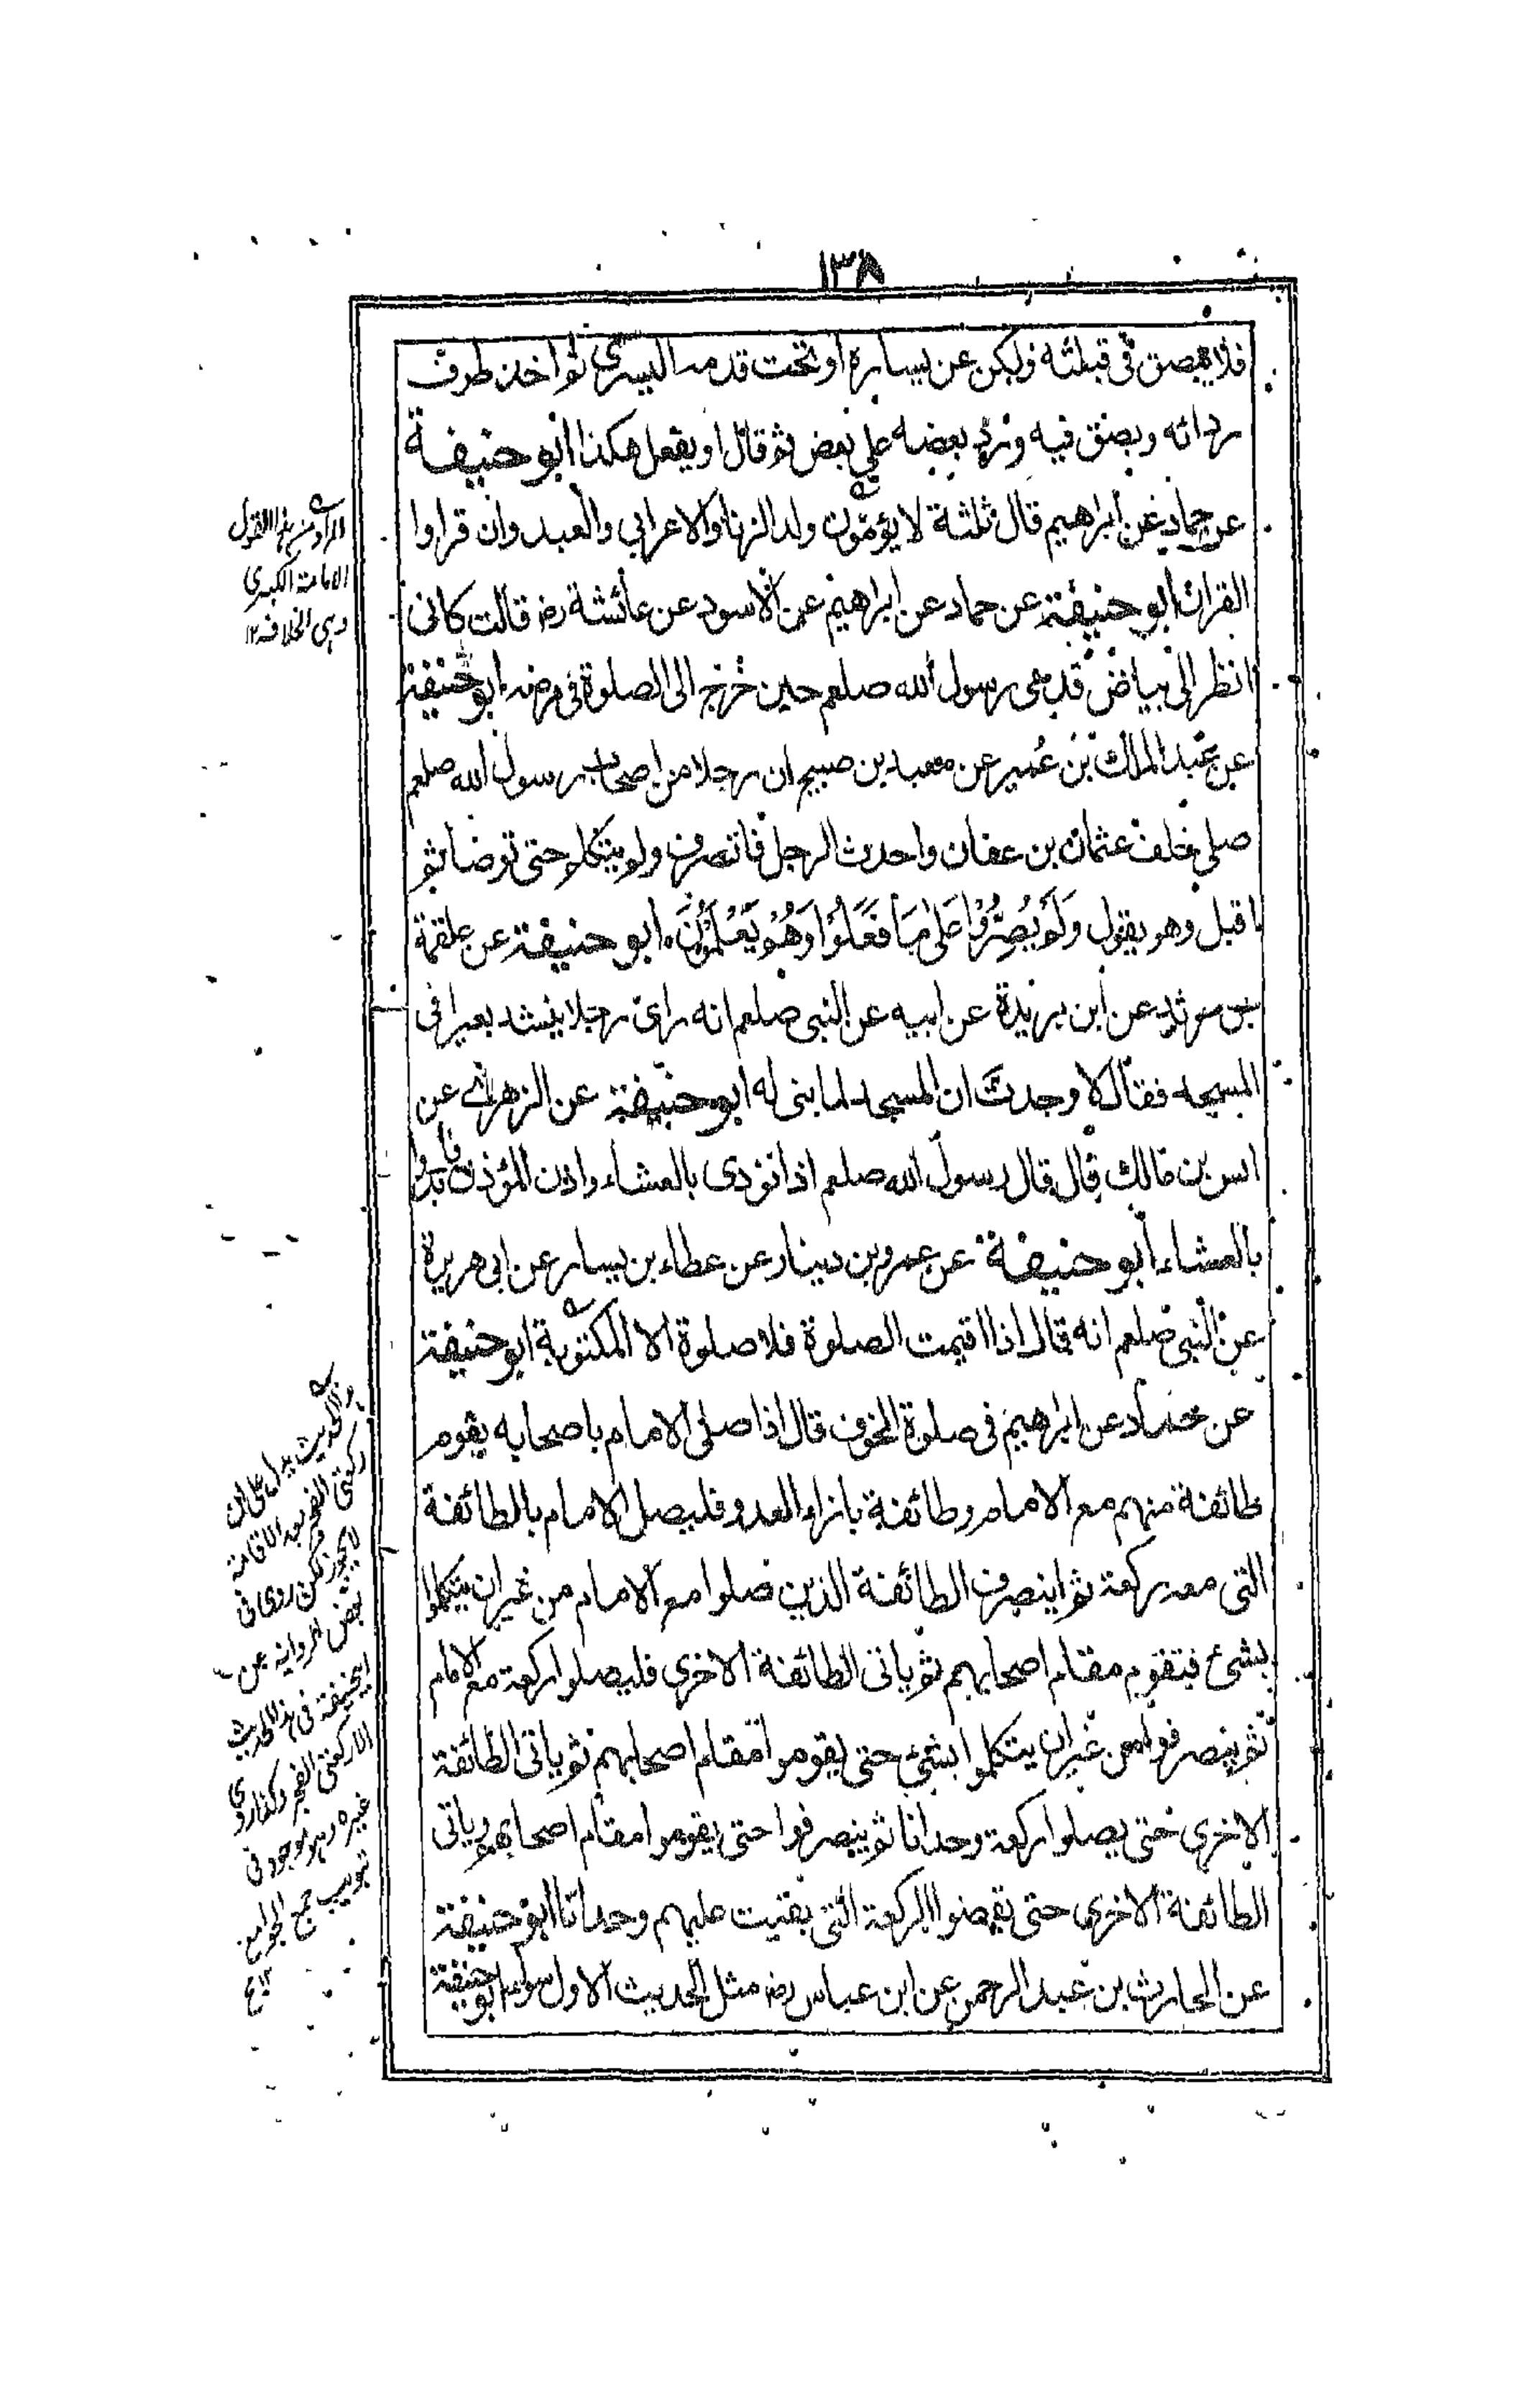 ١٣٨
فلا يبصق في قبلته ولكن عن يساره او تحت قدمه اليسرى ثم اخذ طرف
ردائه وبصق فيه ورد بعضه على بعض ثم قال او يفعل هكذا ابو حنيفة
عن حماد عن ابراهيم قال ثلثة لا يؤمون ولد الزنا والاعرابي والعبد وان قراوا
القران ابو حنيفة عن حماد عن ابراهيم عن الاسود عن عائشة رض قالت كانى
انظر الى بياض قدمي رسول الله صلعم حين خرج الى الصلوة في مرضه ابو حنيفة
عن عبد الملك بن عمير عن معبد بن صبيح ان رجلا من اصحاب رسول الله صلعم
صلى خلف عثمان بن عفان واحدث الرجل فانصرف ولم يتكلم حتى توضا ثم
اقبل وهو يقول وَلَمْ يُصِرُّوْا عَلىٰ مَا فَعَلُوْا وَهُمْ يَعْلَمُوْنَ ابو حنيفة عن علقمة
بن مرثد عن ابن بريدة عن ابيه عن النبى صلعم انه راى رجلا ينشد بعيرا في
المسجد فقال لا وجدت ان المسجد لما بنى له ابو حنيفة عن الزهرى عن
انس بن مالك قال قال رسول الله صلعم اذا نودى بالعشاء واذن المؤذن فابدوا
بالعشاء ابو حنيفة عن عمرو بن دينار عن عطاء بن يسار عن ابى هريرة
عن النبى صلعم انه قال اذا اقيمت الصلوة فلا صلوة الا المكتوبة ابو حنيفة
عن حماد عن ابراهيم فى صلوة الخوف قال اذا صلى الامام باصحابه يقوم
طائفة منهم مع الامام وطائفة بازاء العدو فليصل الامام بالطائفة
التى معه ركعة ثم اينصرف الطائفة الذين صلوا مع الامام من غير ان يتكلموا
بشئ فتقوم مقام اصحابهم ثم ياتى الطائفة الاخرى فليصلوا ركعة مع الامام
ثم ينصرفوا من غير ان يتكلموا بشئ حتى يقوموا مقام اصحابهم ثم ياتى الطائفة
الاخرى حتى يصلوا ركعة وحدانا ثم ينصرفوا حتى يقوموا مقام اصحابهم وياتى
الطائفة الاخرى حتى يقضوا الركعة التى بقيت عليهم وحدانا ابو حنيفة
عن الحارث بن عبد الرحمن عن ابن عباس رض مثل الحديث الاول سواء ابو حنيفة
المراد من هذا القول
الامامة الكبرى
وهى الخلافة ١٢
الحديث يدل على ان
ركعتى الفجر بعد الاقامة
لا يجوز لكن روى فى
بعض الرواية عن
ابيحنيفة فى هذا الحديث
الا ركعتى الفجر وكذا روى
غيره وهو موجود فى
تبويب جمع الجوامع